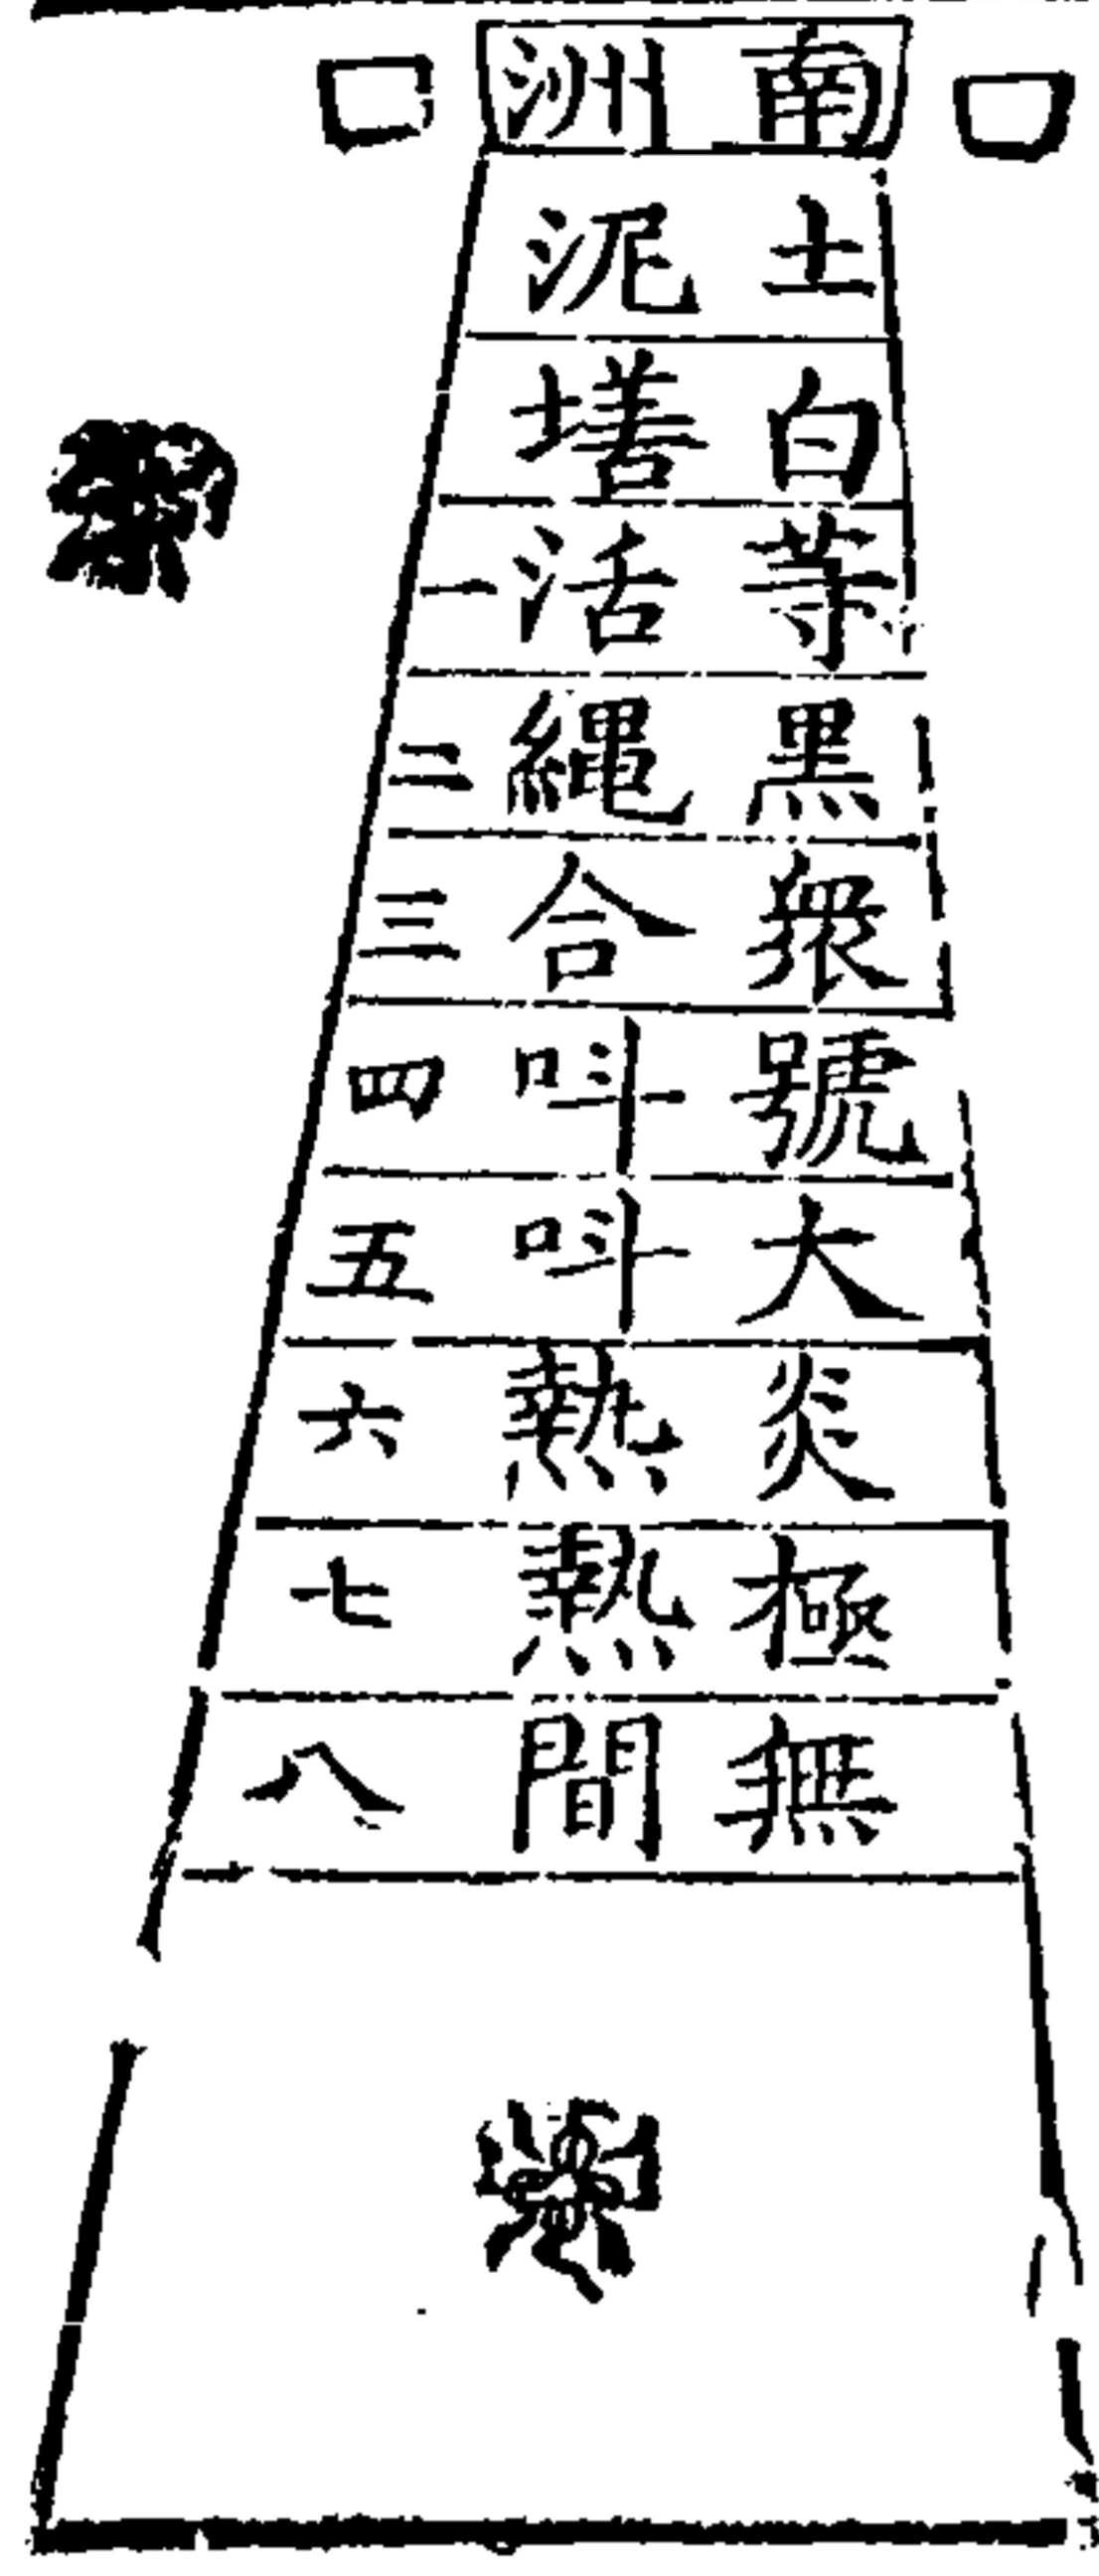 南洲
土泥
白墡
等活一
黑縄二
衆合三
號呌四
大呌五
炎熱六
極熱七
無間八